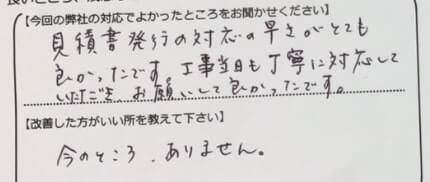 【今回の弊社の対応でよかったところをお聞かせください】
見積書発行の対応の早さがとても
良かったです。工事当日も丁寧に対応して
いただき、お願いして良かったです。
【改善した方がいい所を教えて下さい】
今のところ、ありません。